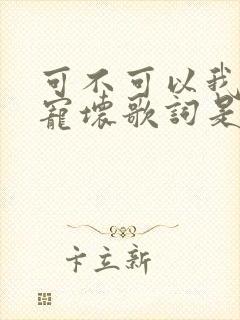 可不可以我
寵壞歌詞是
卞立新